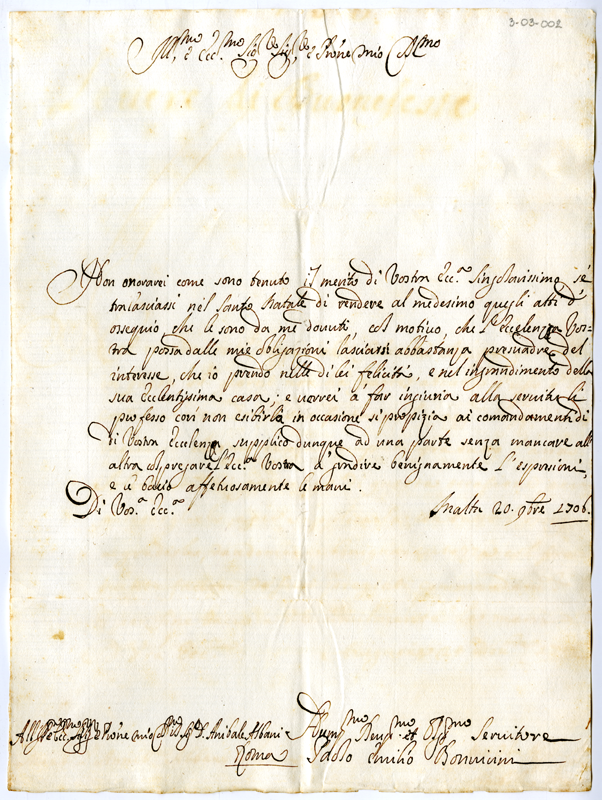 3-03-002
Ill.mo, è Ecc.mo Sig.re Sig.re, è Prone mio Col.mo
Non onorarei come sono tenuto il merito di Vostra Ecc.a Singolarissimo, sé
tralasciassi nel Santo Natale di rendere al medesimo quegli atti d'
ossequio, che le sono da me dovuti, col motivo, che l'Eccelenza Vos-
tra possa dalle mie obligazioni lasciarsi abbastanza persuadere del
interesse, che io prendo nelle di lei felicità, e nel ingrandimento della
sua Eccelentissima casa; e vorrei à far ingiuria alla servitù, li
professo così non esibirli in occasione si propizia ai comandamenti di
di Vostra Eccelenza supplico dunque ad una parte senza mancare all'
altra col pregare l'Ecc.a Vostra d'gradire benignamente l'espressioni,
e li bacio affettuosamente le mani.
Di Vos.a Ecc.a
Malta 20. 9bre 1706.
All' Prone mio D. Anibale Albani
Roma
Hum.mo Deuo.mo et Obl.mo Servitore
Paolo Emilio Bonvicini